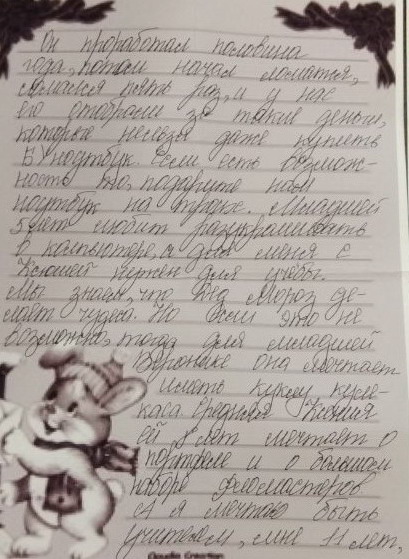 Он проработал половина
года, потом начал ломатся,
сломался пять раз, и у нас
его отобрали за такие деньги,
которые нельзя даже купить
БУ ноутбук. Если есть возмож-
ность то, подарите нам
ноутбук на троих. Младшей
5 лет любит разукрашивать
в компьютере, а для меня с
Ксюшей нужен для учёбы.
Мы знаем, что Дед Мороз де-
лает чудеса. Но если это не
возможно, тогда для младшей
Веронике она мечтает
иметь куклу
Средняя Ксения
ей 8 лет мечтает о
портфеле и о большом
наборе фломастеров
А я мечтаю быть
учителем, мне 11 лет,